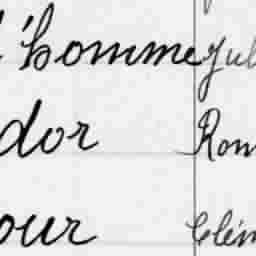 l'homme Jul
dor Rom
our Clém